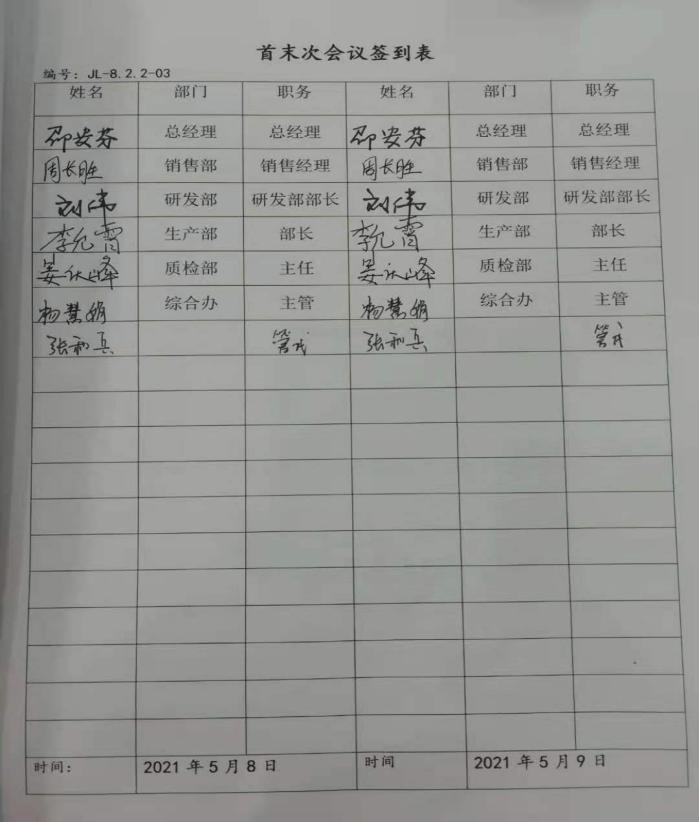 首末次会议签到表
编号: JL-8.2.2-03
姓名 部门 职务 姓名 部门 职务
邵安芬 总经理 总经理 邵安芬 总经理 总经理
周长胜 销售部 销售经理 周长胜 销售部 销售经理
刘伟 研发部 研发部部长 刘伟 研发部 研发部部长
李允霄 生产部 部长 李允霄 生产部 部长
姜庆峰 质检部 主任 姜庆峰 质检部 主任
杨慧娟 综合办 主管 杨慧娟 综合办 主管
张和兵 张和兵
时间: 2021 年 5 月 8 日 时间 2021 年 5 月 9 日